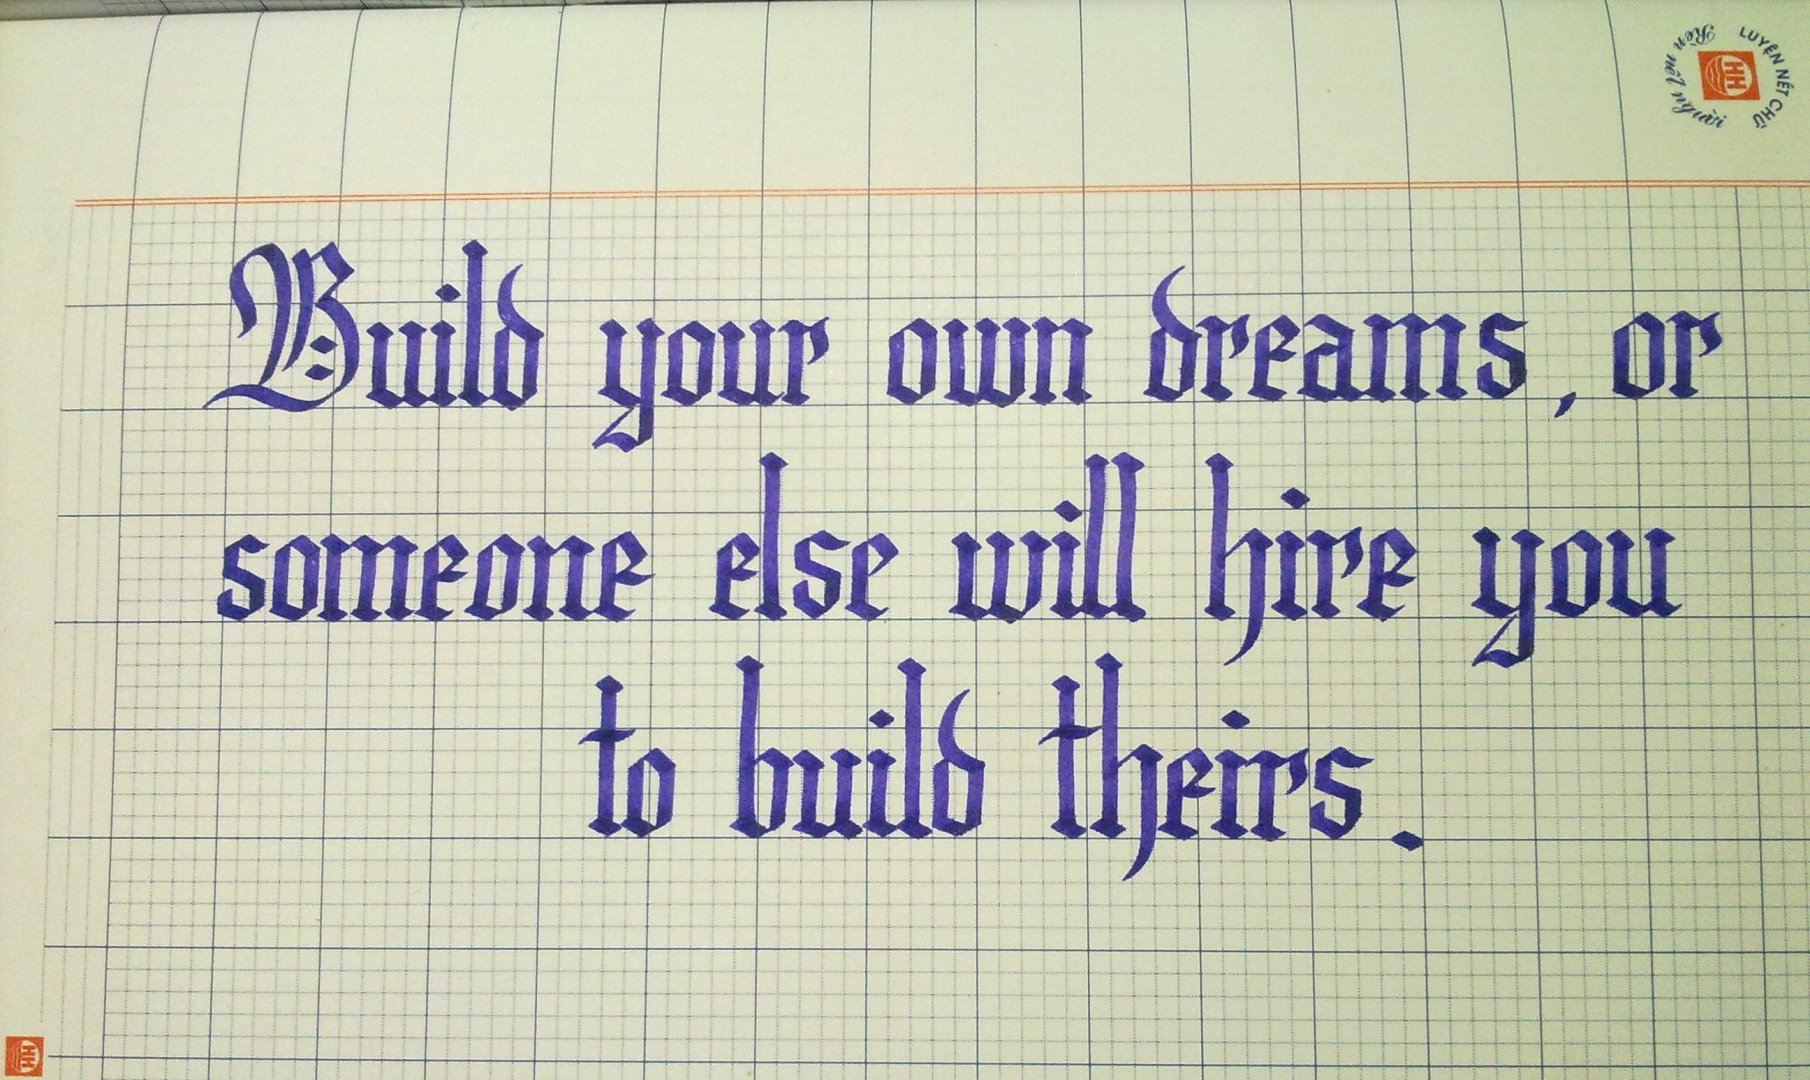 LUYỆN NÉT CHỮ
Rèn nết người
HH
Build your own dreams, or
someone else will hire you
to build theirs.
HH